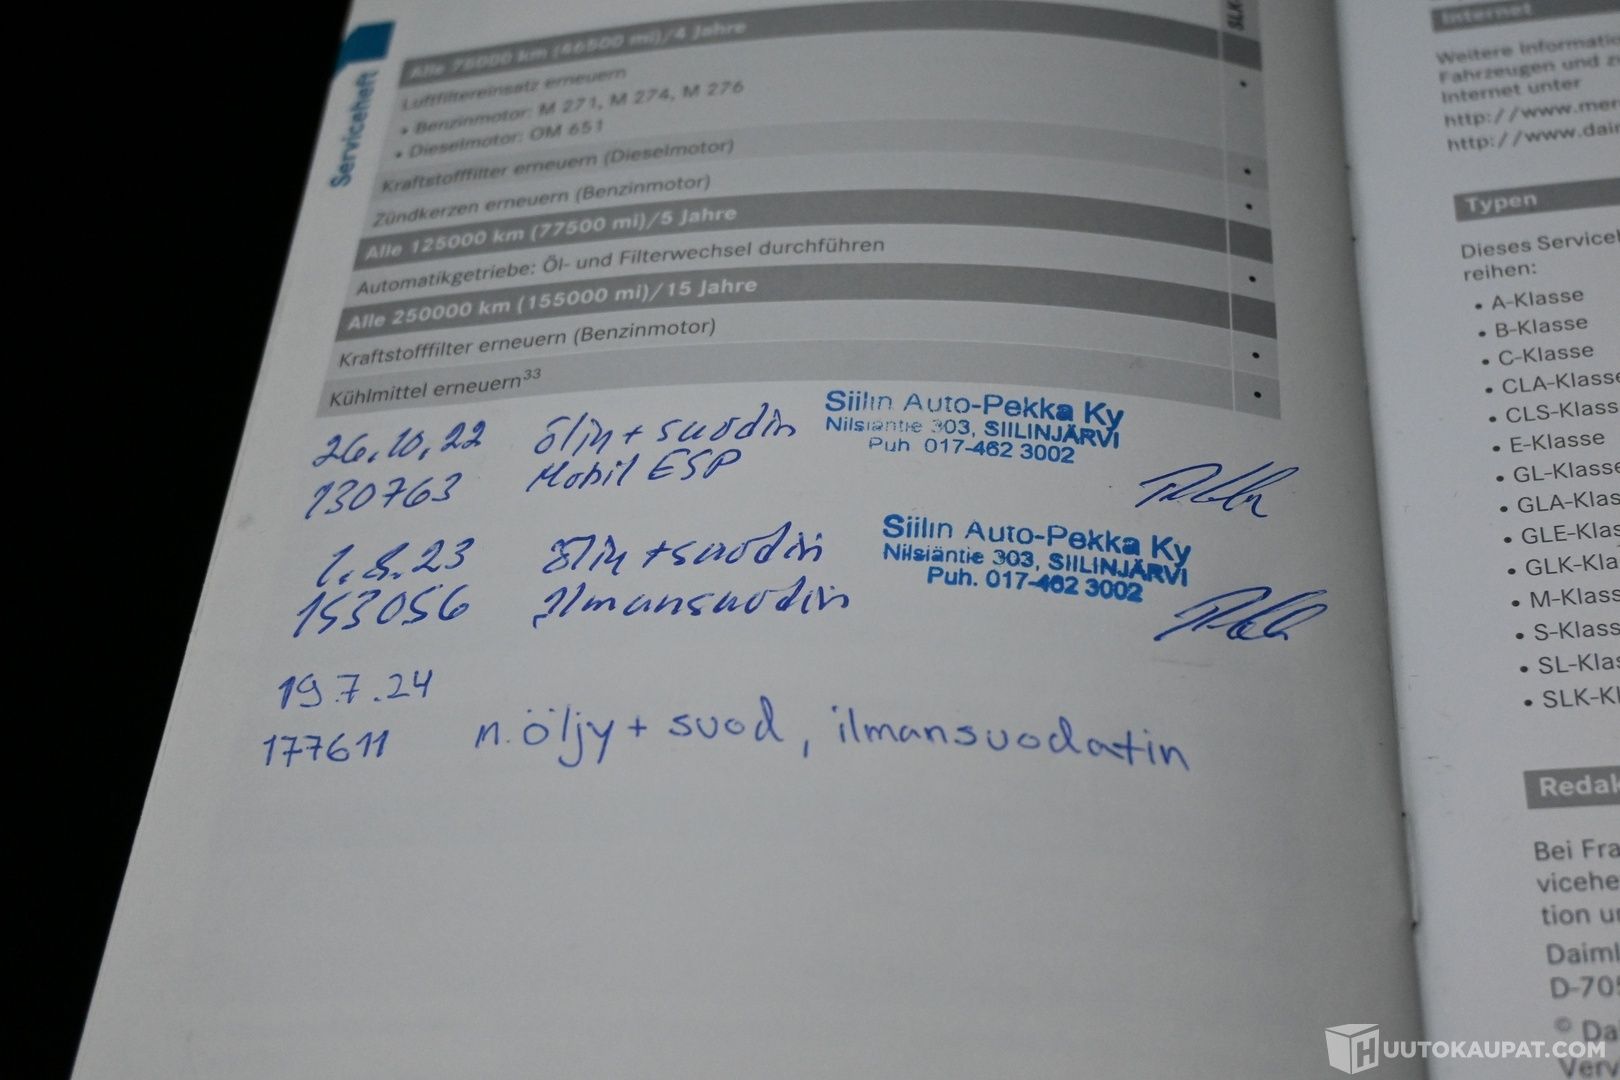 Serviceheft
SLK-
Alle 75000 km (46500 mi)/4 Jahre
Luftfiltereinsatz erneuern
• Benzinmotor: M 271, M 274, M 276
• Dieselmotor: OM 651
Kraftstofffilter erneuern (Dieselmotor)
Zündkerzen erneuern (Benzinmotor)
Alle 125000 km (77500 mi)/5 Jahre
Automatikgetriebe: Öl- und Filterwechsel durchführen
Alle 250000 km (155000 mi)/15 Jahre
Kraftstofffilter erneuern (Benzinmotor)
Kühlmittel erneuern33
26.10.22 öljy + suodin
130763 Mobil ESP
Siilin Auto-Pekka Ky
Nilsiäntie 303, SIILINJÄRVI
Puh 017-462 3002
1.8.23 öljy + suodin
153056 ilmansuodin
Siilin Auto-Pekka Ky
Nilsiäntie 303, SIILINJÄRVI
Puh. 017-462 3002
19.7.24
177611 m.öljy + suod, ilmansuodatin
Internet
Weitere Informatio
Fahrzeugen und z
Internet unter
http://www.mer
http://www.dai
Typen
Dieses Serviceh
reihen:
• A-Klasse
• B-Klasse
• C-Klasse
• CLA-Klasse
• CLS-Klass
• E-Klasse
• GL-Klasse
• GLA-Klas
• GLE-Klas
• GLK-Kla
• M-Klass
• S-Klass
• SL-Klas
• SLK-Kl
Redak
Bei Fra
vicehe
tion u
Daiml
D-705
© Da
Verv
HUUTOKAUPAT.COM